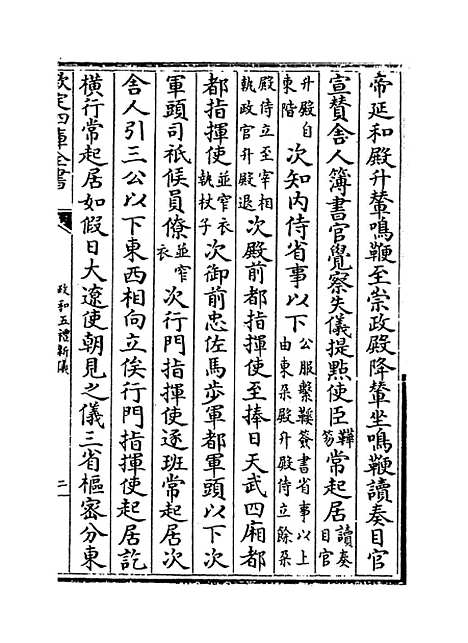 帝延和殿升輦鳴鞭至崇政殿降輦坐鳴鞭讀奏目官
宣贊舍人簿書官覺察失儀提點使臣鞾笏常起居讀奏目官
升殿自東階次知内侍省事以下公服繫鞵簽書省事以上由東朶殿升殿侍立餘朶
殿侍立至宰相執政官升殿退次殿前都指揮使至捧日天武四廂都
都指揮使並窄衣執杖子次御前忠佐馬步軍都軍頭以下次
軍頭司祗候員僚並窄衣次行門指揮使逐班常起居次
舍人引三公以下東西相向立俟行門指揮使起居訖
橫行常起居如假日大遼使朝見之儀三省樞密分東
欽定四庫全書
政和五禮新儀
二